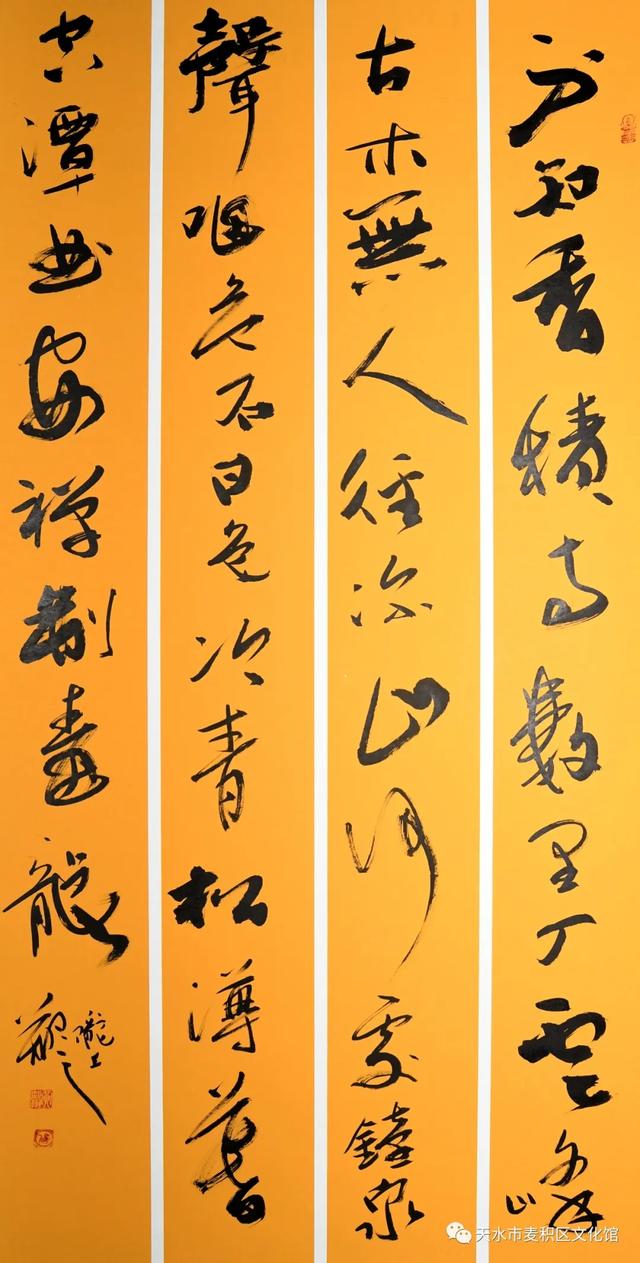 不知香積寺數里入雲峰
古木無人徑深山何處鐘泉
聲咽危石日色冷青松薄暮
空潭曲安禪制毒龍
隴上
天水市麦积区文化馆